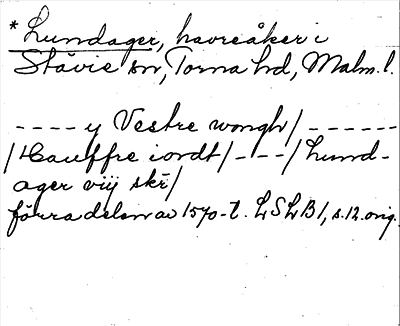 * Lundager, havreåker i
Stävie sn, Torna hd, Malm. l.
- - - - y Vestre wongh/ - - - - - -
/Hauffre iordt/ - - - / Lund-
ager viij skr/
förra delen av 1570-t. LSLB 1, s. 12. orig.